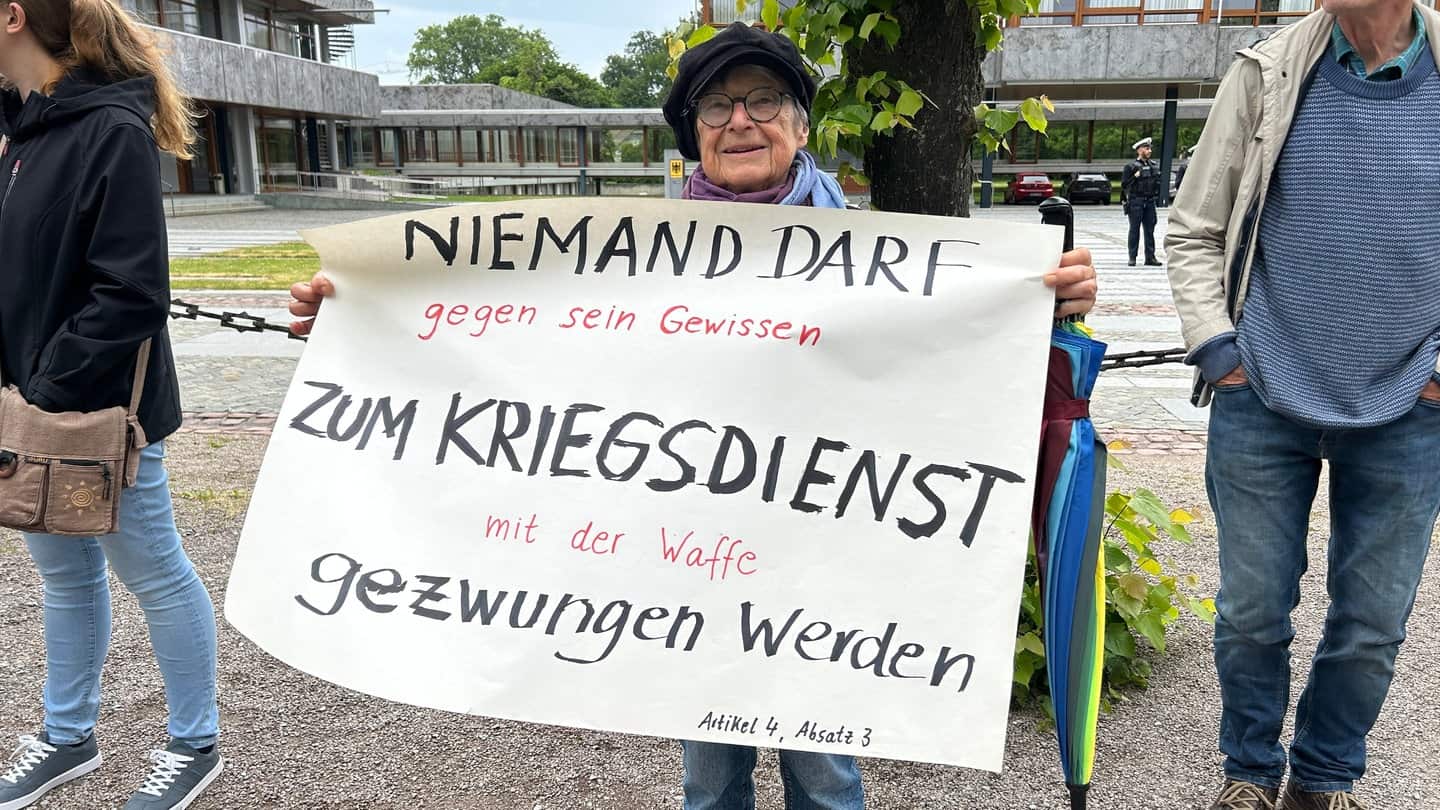 NIEMAND DARF
gegen sein Gewissen
ZUM KRIEGSDIENST
mit der Waffe
gezwungen Werden
Artikel 4, Absatz 3